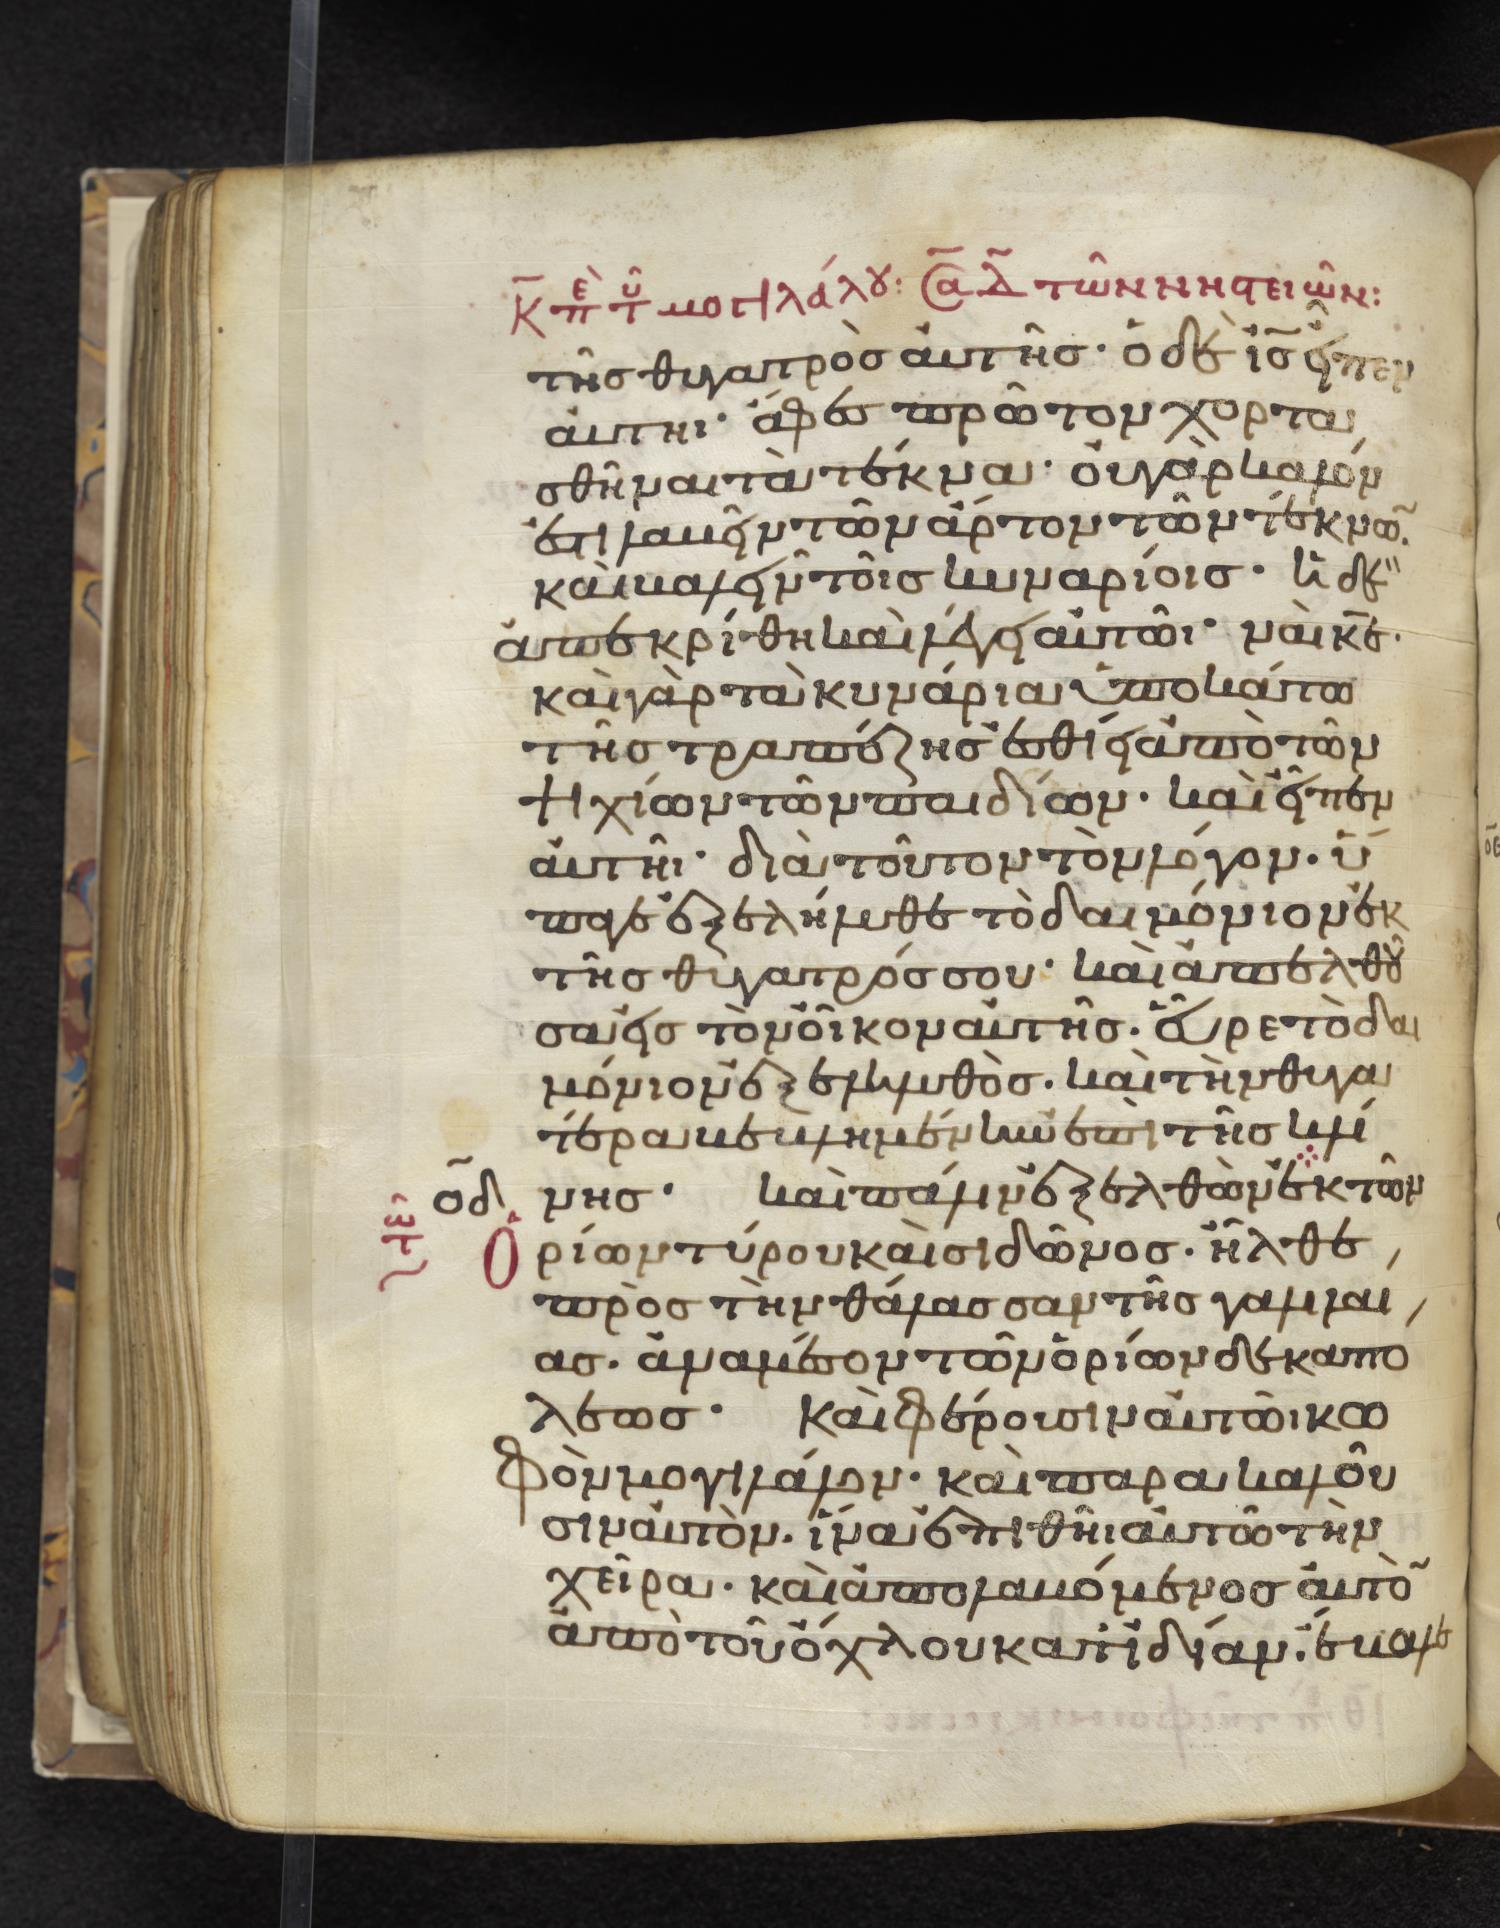 κ̅ περὶ τοῦ μογιλάλου: Σα δ̅ τῶν νηστειῶν:
τῆσ θυγατρὸσ ἀυτῆσ· ὁ δὲ ι̅σ̅ εἶπεν
ἀυτῆι· ἄφεσ πρῶτον χορτα
σθῆναι τὰ τέκνα· ὀυ γὰρ καλόν
ἐστι λαβεῖν τῶν ἄρτον τῶν τέκνω̅.
καὶ βαλεῖν τοῖσ κυναρίοισ· ἡ δὲ
ἀπεκρίθη καὶ λέγει ἀυτῶι· ναὶ κ̅ε̅.
καὶ γὰρ τὰ κυνάρια ὑποκάτω
τῆσ τραπέζησ ἐσθίει ἀπὸ τῶν
ψιχίων τῶν παιδίων· καὶ εἶπεν
ἀυτῆι· διὰ τοῦτον τὸν λόγον. ὕ
παγε ἐξελήλυθε τὸ δαιμόνιον ἐκ
τῆσ θυγατρόσ σου· καὶ ἀπελθοῦ
σα εἰσ τὸν οἶκον ἀυτῆσ. εὗρε τὸ δαι
μόνιον ἐξεληλυθὸσ. καὶ τὴν θυγα
τέρα βεβλημένην ἐπὶ τῆσ κλί
ο̅δ νησ· καὶ πάλιν ἐξελθὼν ἐκ τῶν
Ὁρίων τύρου καὶ σιδῶνοσ. ἦλθε
πρὸσ τὴν θάλασσαν τῆσ γαλιλαι
ασ. ἀναμέσον τῶν ὁρίων δεκαπο
λεωσ· Καὶ φέρουσιν ἀυτῶι κω
φὸν μογιλάλον· καὶ παρακαλοῦ
σιν ἀυτὸν. ἵνα ἐπιθῆι ἀυτῶ τὴν
χεῖρα. καὶ ἀπολαβόμενοσ ἀυτὸ̅
ἀπὸ τοῦ ὄχλου κατἰδίαν. ἔβαλε